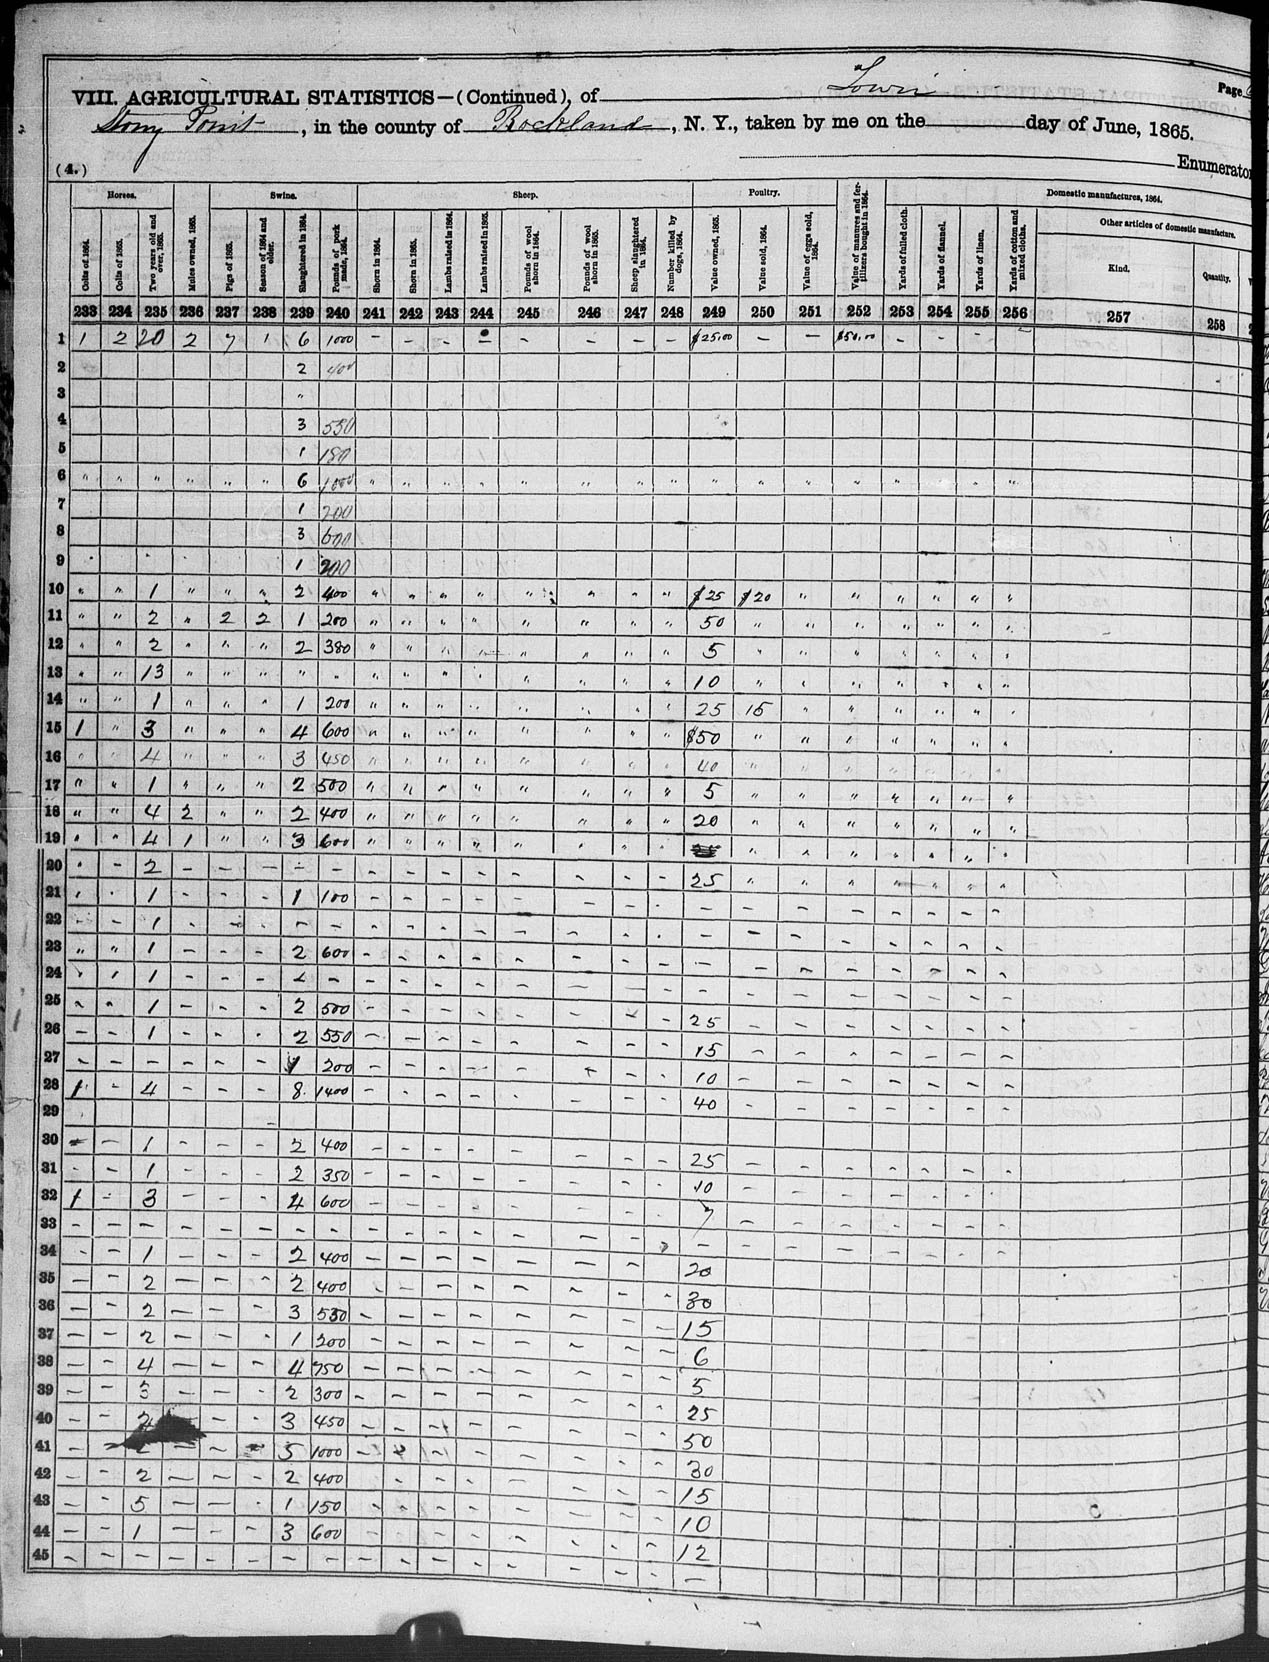 Page
VIII. AGRICULTURAL STATISTICS—(Continued), of Town
Stony Point, in the county of Rockland, N. Y., taken by me on the day of June, 1865.
(4.) Enumerator
Horses. Swine. Sheep. Poultry. Domestic manufactures, 1864.
Other articles of domestic manufacture.
Colts of 1864. Colts of 1865. Two years old and over, 1865. Mules owned, 1865. Pigs of 1865. Season of 1864 and older. Slaughtered in 1864. Pounds of pork made, 1864. Shorn in 1864. Shorn in 1865. Lambs raised in 1864. Lambs raised in 1865. Pounds of wool shorn in 1864. Pounds of wool shorn in 1865. Sheep slaughtered in 1864. Number killed by dogs, 1864. Value owned, 1865. Value sold, 1864. Value of eggs sold, 1864. Value of manures and fertilizers bought in 1864. Yards of fulled cloth. Yards of flannel. Yards of linen. Yards of cotton and mixed cloths. Kind. Quantity.
233 234 235 236 237 238 239 240 241 242 243 244 245 246 247 248 249 250 251 252 253 254 255 256 257 258
1 1 2 20 2 7 1 6 1000 – – – – – – – – $25.00 – – $50.00 – – – –
2 2 400
3 "
4 3 550
5 1 180
6 " " " " " " 6 1000 " " " " " " " " " " " " " " " "
7 1 200
8 3 600
9 1 200
10 " " 1 " " " 2 400 " " " " " " " " $25 $20 " " " " " "
11 " " 2 " 2 2 1 200 " " " " " " " " 50 " " " " " " "
12 " " 2 " " " 2 380 " " " " " " " " 5 " " " " " " "
13 " " 13 " " " " " " " " " " " " " 10 " " " " " " "
14 " " 1 " " " 1 200 " " " " " " " " 25 15 " " " " " "
15 1 " 3 " " " 4 600 " " " " " " " " $50 " " " " " " "
16 " " 4 " " " 3 450 " " " " " " " " 40 " " " " " " "
17 " " 1 " " " 2 500 " " " " " " " " 5 " " " " " " "
18 " " 4 2 " " 2 400 " " " " " " " " 20 " " " " " " "
19 " " 4 1 " " 3 600 " " " " " " " " " " " " " " "
20 " – 2 – – – – – – – – – – – – – 25 " " " " " " "
21 " " 1 – – – 1 100 – – – – – – – – – – – – – – – –
22 – – 1 – – – – – – – – – – – – – – – – – – – – –
23 " " 1 – – – 2 600 – – – – – – – – – – – – – – – –
24 1 – – – – – – – – – – – – – – – – – – – –
25 " " 1 – – – 2 500 – – – – – – – – 25 – – – – – – –
26 – – 1 – – – 2 550 – – – – – – – – 15 – – – – – – –
27 – – – – – – 1 200 – – – – – – – – 10 – – – – – – –
28 1 – 4 – – – 8 1400 – – – – – – – – 40
29
30 – – 1 – – – 2 400 – – – – – – – – 25 – – – – – – –
31 – – 1 – – – 2 350 – – – – – – – – 10 – – – – – – –
32 1 – 3 – – – 4 600 – – – – – – – – 7 – – – – – – –
33 – – – – – – – – – – – – – – – – – – – – – – – –
34 – – 1 – – – 2 400 – – – – – – – 20
35 – – 2 – – – 2 400 – – – – – – – – 30
36 – – 2 – – – 3 – – – – – – – – 15
37 – – 2 – – – 1 200 – – – – – – – – 6
38 – – 4 – – – 4 750 – – – – – – – – 5
39 – – 3 – – – 2 300 – – – – – – – – 25
40 – – – – 3 450 – – – – – – – – 50
41 – – – – 5 1000 – – – – – – – 30
42 – – 2 – – – 2 400 – – – – – – – 15
43 – – 5 – – – 1 150 – – – – – – – – 10
44 – – 1 – – – 3 600 – – – – – – – – 12
45 – – – – – – – – – – – – – – – – –